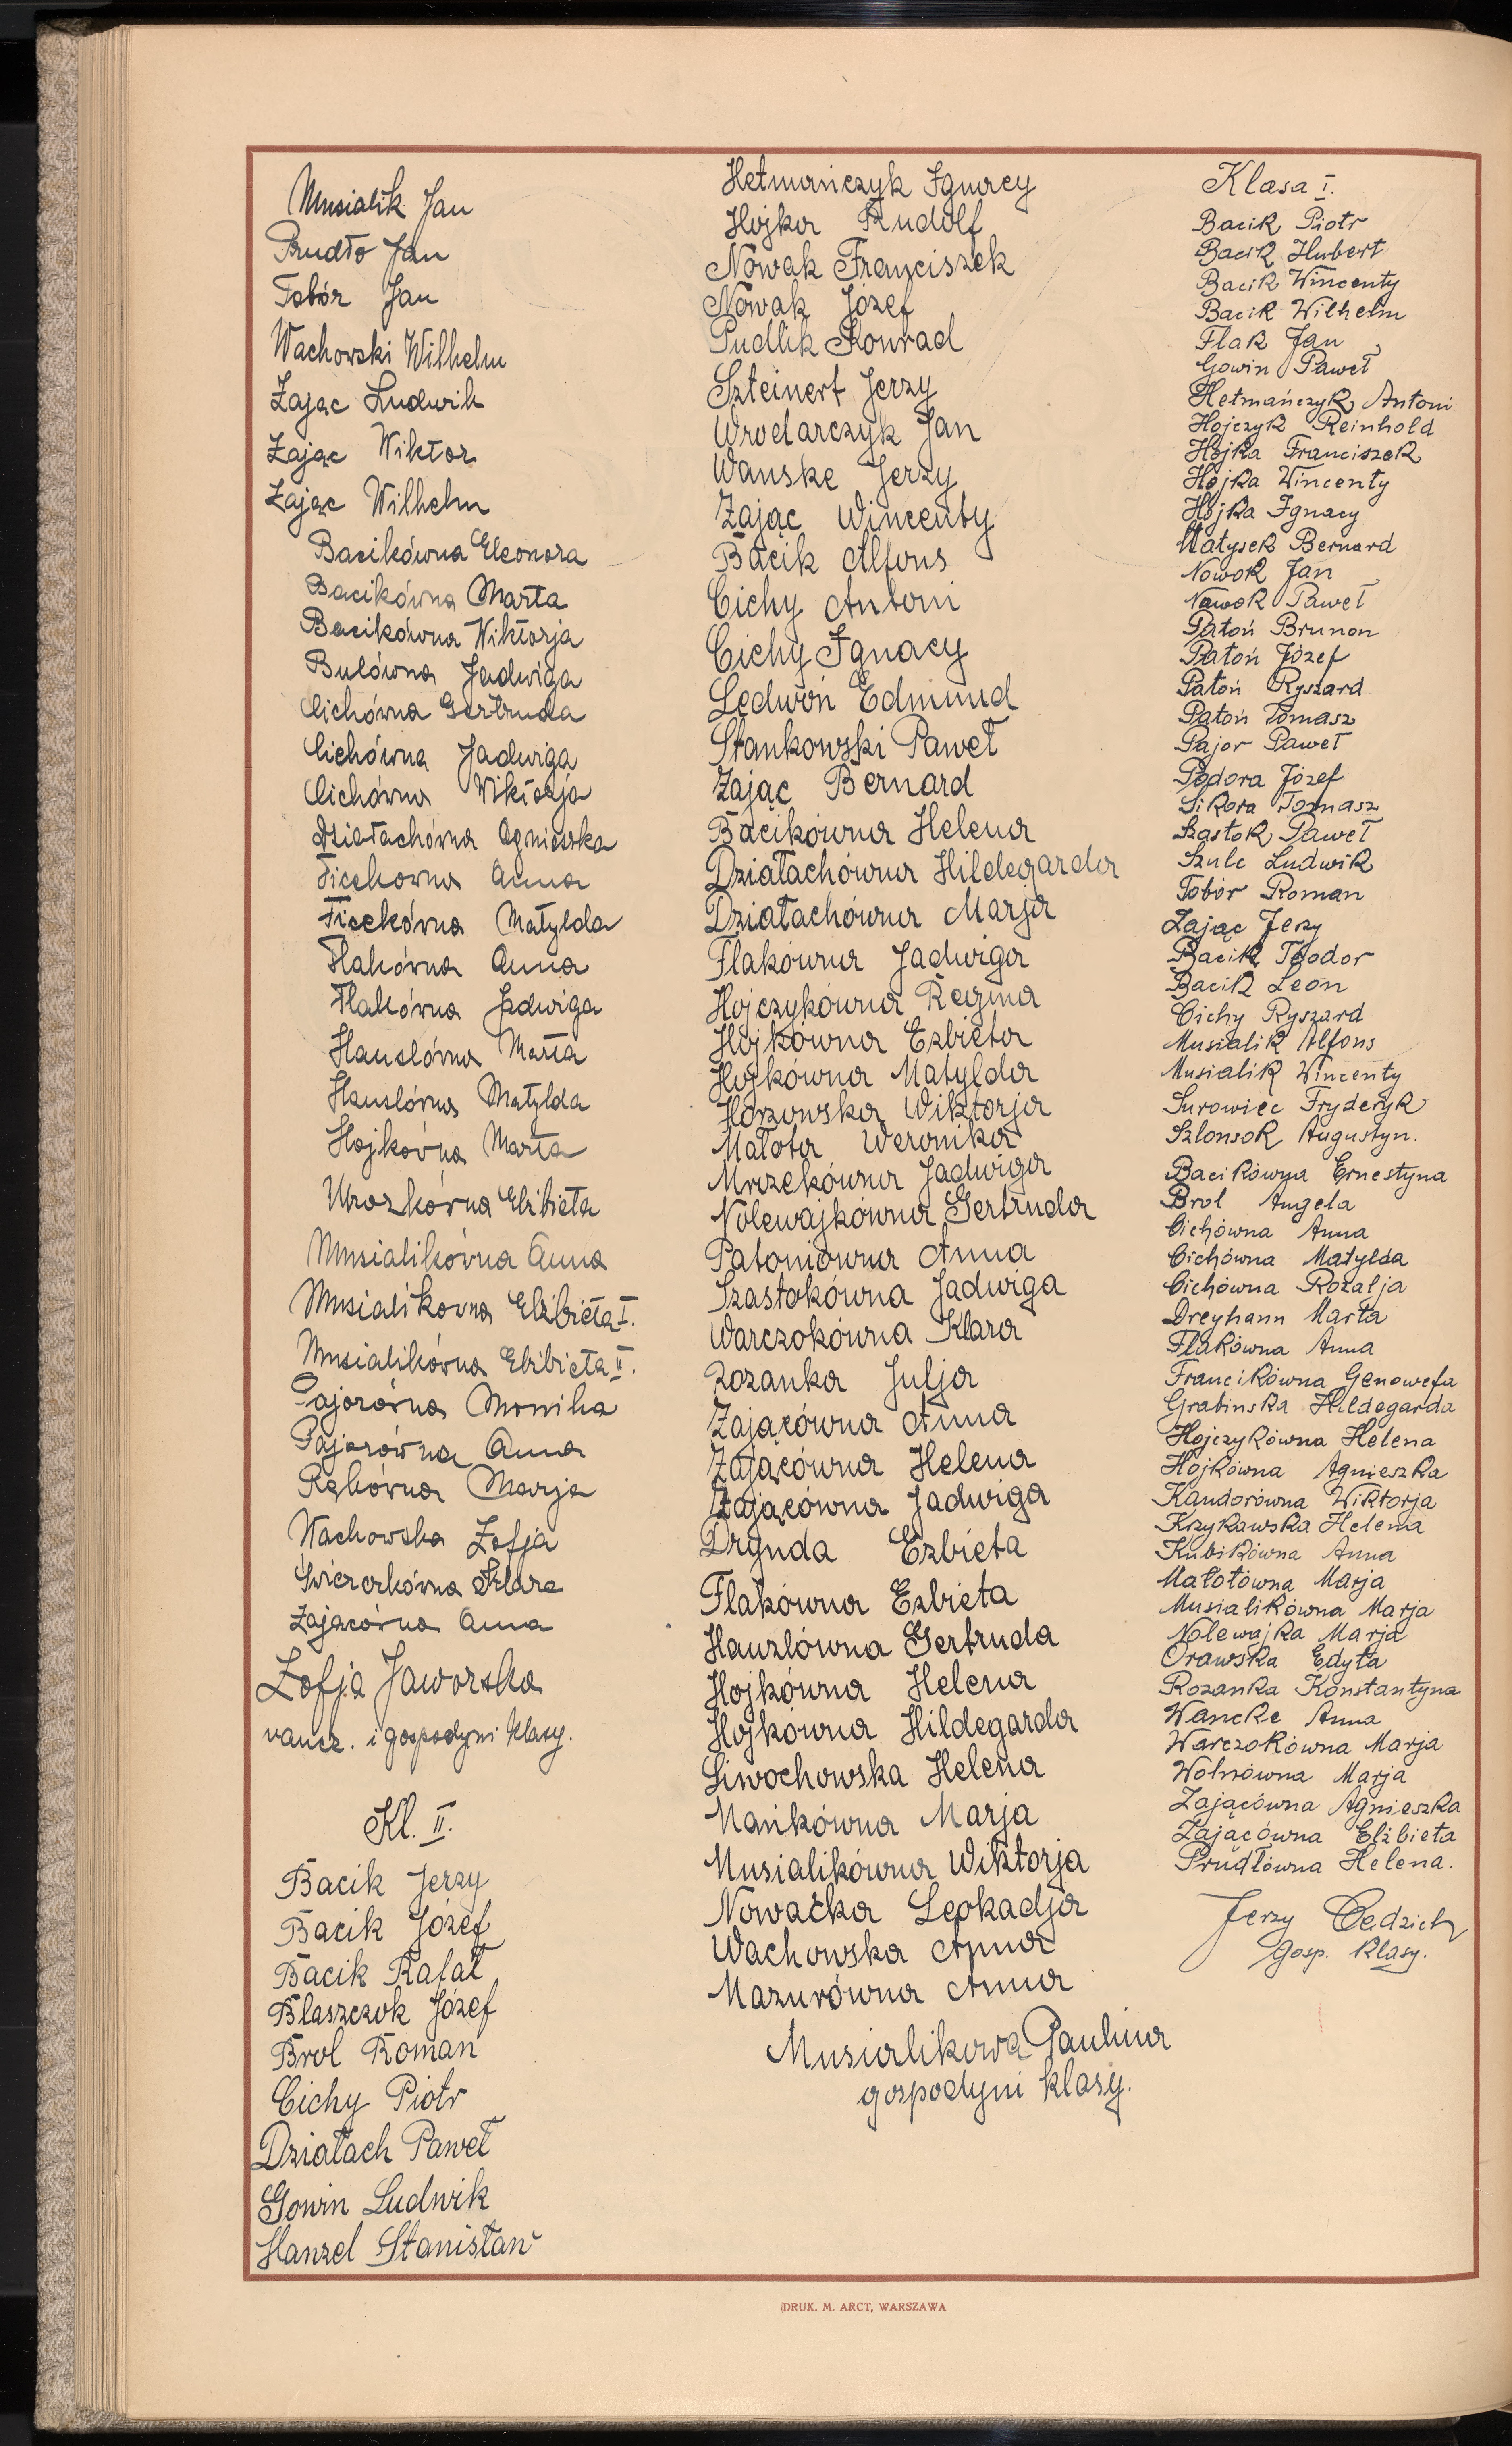 Musialik Jan
Prudło Jan
Tobór Jan
Wachowski Wilhelm
Zając Ludwik
Zając Wiktor
Zając Wilhelm
Bacikówna Eleonora
Bacikówna Marta
Bacikówna Wiktorja
Bulówna Jadwiga
Cichówna Gertruda
Cichówna Jadwiga
Cichówna Wiktorja
Działachówna Agnieszka
Ficekówna Anna
Ficekówna Matylda
Flakówna Anna
Flakówna Jadwiga
Hauslówna Marta
Hauslówna Matylda
Hojkówna Marta
Mrozkówna Elżbieta
Musialikówna Anna
Musialikówna Elżbieta I.
Musialikówna Elżbieta II.
Pajorówna Monika
Pajorówna Anna
Rękówna Marja
Wachowska Zofja
Świerczkówna Klara
Zającówna Anna
Zofja Jaworska
naucz. i gospodyni klasy.
Kl. II.
Bacik Jerzy
Bacik Józef
Bacik Rafał
Blaszczok Józef
Brol Roman
Cichy Piotr
Działach Paweł
Gowin Ludwik
Hanzel Stanisław
Hetmańczyk Ignacy
Hojka Rudolf
Nowak Franciszek
Nowak Józef
Pudlik Konrad
Szteinert Jerzy
Wrodarczyk Jan
Wanske Jerzy
Zając Wincenty
Bacik Alfons
Cichy Antoni
Cichy Ignacy
Ledwoń Edmund
Stankowski Paweł
Zając Bernard
Bacikówna Helena
Działachówna Hildegarda
Działachówna Marja
Flakówna Jadwiga
Hojczykówna Regina
Hojkówna Ezbieta
Hojkówna Matylda
Horzowska Wiktorja
Małota Weronika
Mrzekówna Jadwiga
Nolewajkówna Gertruda
Patoniówna Anna
Szastokówna Jadwiga
Warczokówna Klara
Rozanka Julja
Zającówna Anna
Zającówna Helena
Zającówna Jadwiga
Drynda Ezbieta
Flakówna Ezbieta
Hauzlówna Gertruda
Hojkówna Helena
Hojkówna Hildegarda
Siwochowska Helena
Mańkówna Marja
Musialikówna Wiktorja
Nowacka Leokadja
Wachowska Anna
Mazurówna Anna
Musialikowa Paulina
gospodyni klasy.
Klasa I.
Bacik Piotr
Bacik Hubert
Bacik Wincenty
Bacik Wilhelm
Flak Jan
Gowin Paweł
Hetmańczyk Antoni
Hojczyk Reinhold
Hojka Franciszek
Hojka Wincenty
Hojka Ignacy
Małysek Bernard
Nowok Jan
Nawok Paweł
Patoń Brunon
Patoń Józef
Patoń Ryszard
Patoń Tomasz
Pajor Paweł
Podora Józef
Sikora Tomasz
Szastok Paweł
Szulc Ludwik
Tobór Roman
Zając Jerzy
Bacik Teodor
Bacik Leon
Cichy Ryszard
Musialik Alfons
Musialik Wincenty
Surowiec Fryderyk
Szlonsok Augustyn.
Bacikówna Ernestyna
Brol Angela
Cichówna Anna
Cichówna Matylda
Cichówna Rozalja
Dreyhann Marta
Flakówna Anna
Francikówna Genowefa
Grabinska Hildegarda
Hojczykówna Helena
Hojkówna Agnieszka
Kandorówna Wiktorja
Krzykawska Helena
Kubikówna Anna
Małotówna Marja
Musialikówna Marja
Nolewajka Marja
Orawska Edyta
Rozanka Konstantyna
Wancke Anna
Warczokówna Marja
Wolnówna Marja
Zającówna Agnieszka
Zającówna Elżbieta
Prudłówna Helena.
Jerzy Cedzich
gosp. klasy.
DRUK. M. ARCT, WARSZAWA